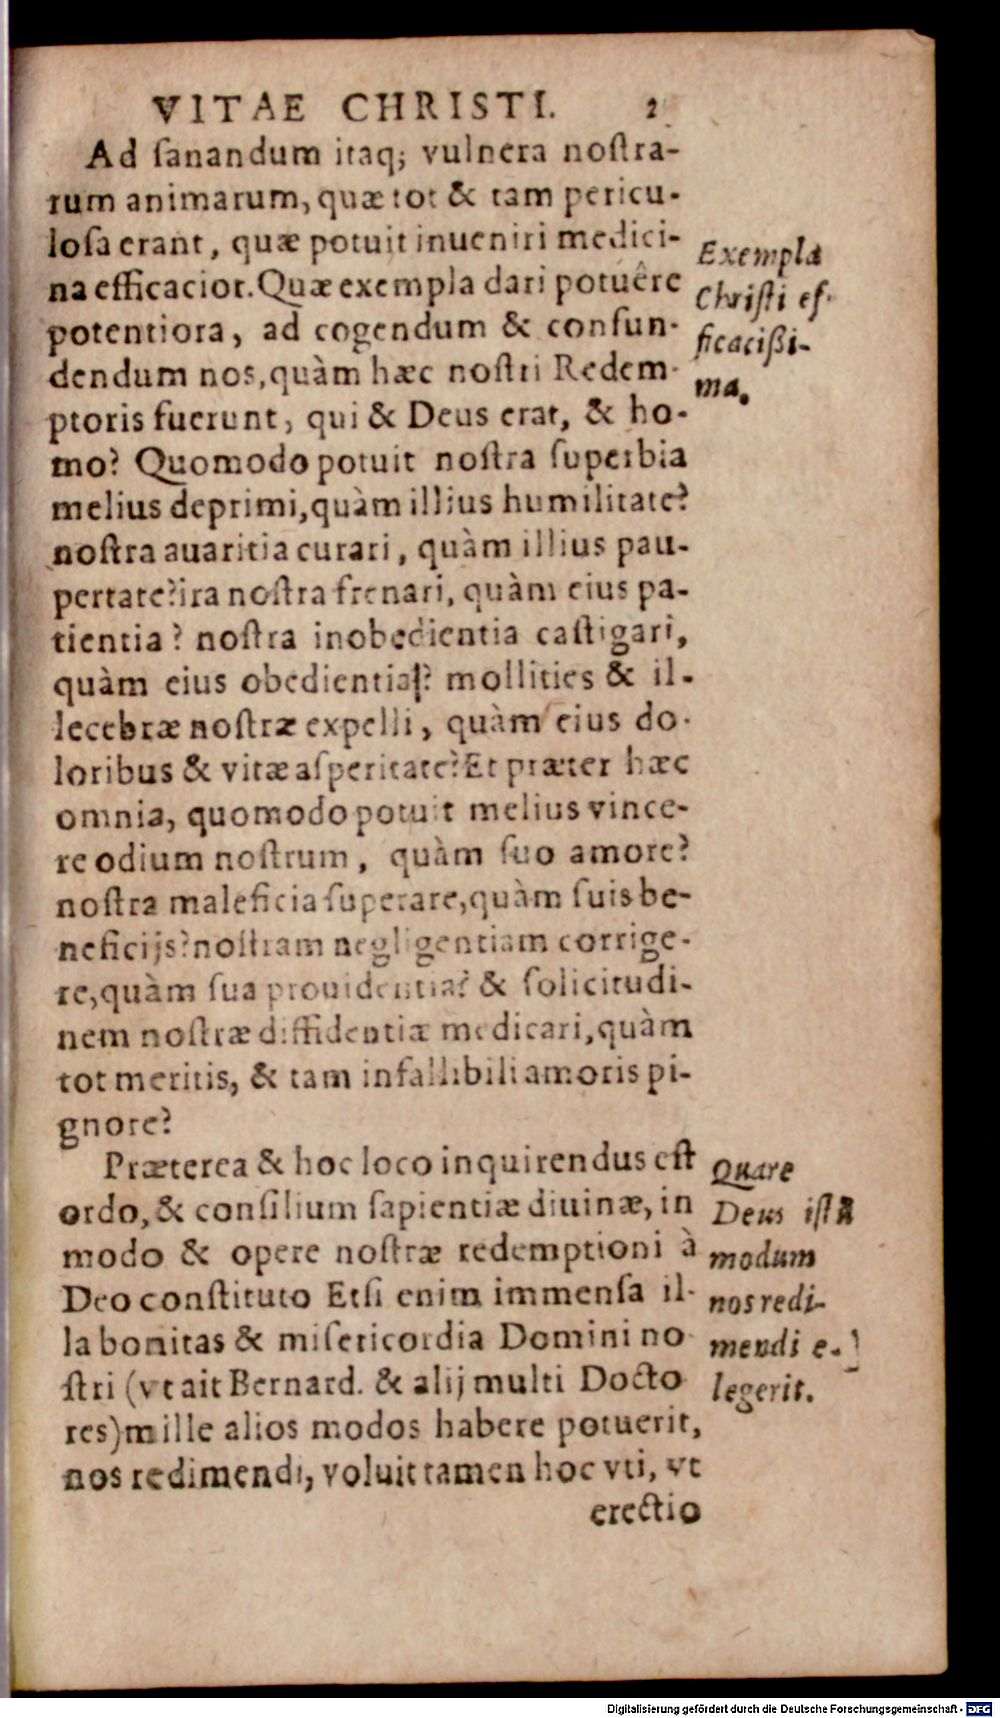 VITAE CHRISTI. 2
Ad ſanandum itaq; vulnera noſtra-
rum animarum, quæ tot & tam pericu-
loſa erant, quæ potuit inueniri medici-
na efficacior. Quæ exempla dari potuêre
potentiora, ad cogendum & confun-
dendum nos, quàm hæc noſtri Redem-
ptoris fuerunt, qui & Deus erat, & ho-
mo? Quomodo potuit noſtra ſuperbia
melius deprimi, quàm illius humilitate?
noſtra auaritia curari, quàm illius pau-
pertate? ira noſtra frenari, quàm eius pa-
tientia? noſtra inobedientia caſtigari,
quàm eius obedientia? mollities & il-
lecebræ noſtræ expelli, quàm eius do-
loribus & vitæ aſperitate? Et præter hæc
omnia, quomodo potuit melius vince-
re odium noſtrum, quàm ſuo amore?
noſtra maleficia ſuperare, quàm ſuis be-
neficijs? noſtram negligentiam corrige-
re, quàm ſua prouidentia? & ſolicitudi-
nem noſtræ diffidentiæ medicari, quàm
tot meritis, & tam infallibili amoris pi-
gnore?
Præterea & hoc loco inquirendus eſt
ordo, & conſilium ſapientiæ diuinæ, in
modo & opere noſtræ redemptioni à
Deo conſtituto Etſi enim immenſa il-
la bonitas & miſericordia Domini no
ſtri (vt ait Bernard. & alij multi Docto
res) mille alios modos habere potuerit,
nos redimendi, voluit tamen hoc vti, vt
erectio
Exempla
Chriſti ef-
ficacißi-
ma.
Quare
Deus iſtū
modum
nos redi-
mendi e-
legerit.
Digitalisierung gefördert durch die Deutsche Forschungsgemeinschaft - DFG